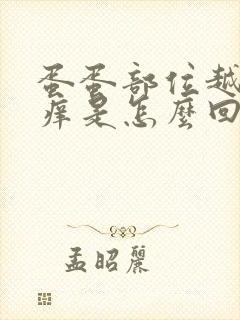 蛋蛋部位越
痒是怎麼回
孟昭麗